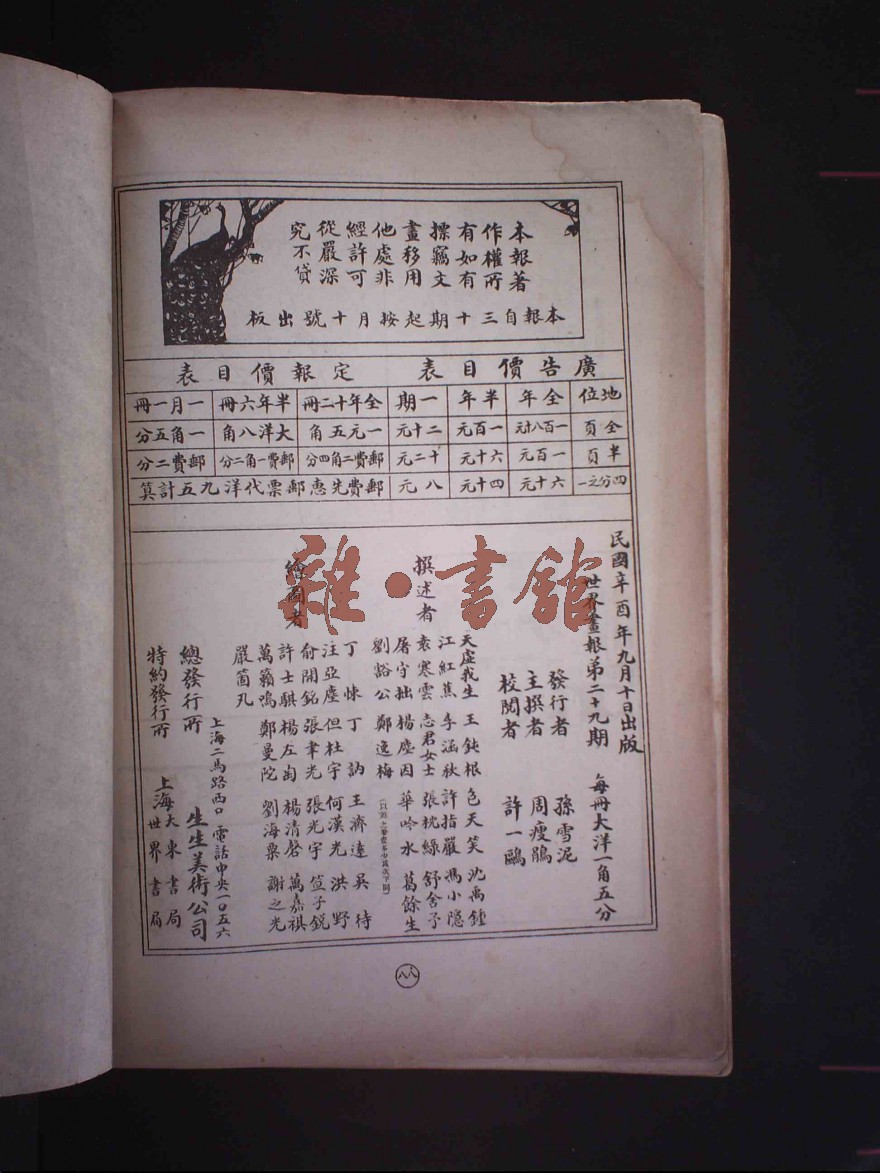 本報著
作權所
有如有
摽竊文
畫移用
他處非
經許可
從嚴深
究不貸
本報自三十期起按月十號出板
廣告價目表
地位 全年 半年 一期
全頁 一百八十元 一百元 二十元
半頁 一百元 六十元 十二元
四分之一 六十元 四十元 八元
定報價目表
全年十二冊 半年六冊 一月一冊
一元五角 大洋八角 一角五分
郵費二角四分 郵費一角二分 郵費二分
郵費先惠郵票代洋九五計算
民國辛酉年九月十日出版
世界畫報第二十九期 每冊大洋一角五分
發行者 孫雪泥
主撰者 周瘦鵑
校閱者 許一鷗
撰述者
天虛我生 王鈍根 包天笑 沈禹鍾
江紅蕉 李涵秋 許指嚴 馮小隱
袁寒雲 志君女士 張枕綠 舒舍予
屠守拙 楊塵因 華吟水 葛餘生
劉豁公 鄭逸梅
繪圖者
丁悚 丁訥 王濟遠 吳待
汪亞塵 但杜宇 何漢光 洪野
俞開銘 張聿光 張光宇 笪子銳
許士騏 楊左匋 楊清磬 萬嘉祺
萬籟鳴 鄭曼陀 劉海粟 謝之光
嚴箇凡
上海二馬路西口 電話中央一〇五六
總發行所 生生美術公司
特約發行所 上海 大東書局
世界書局
雜·書館
八八